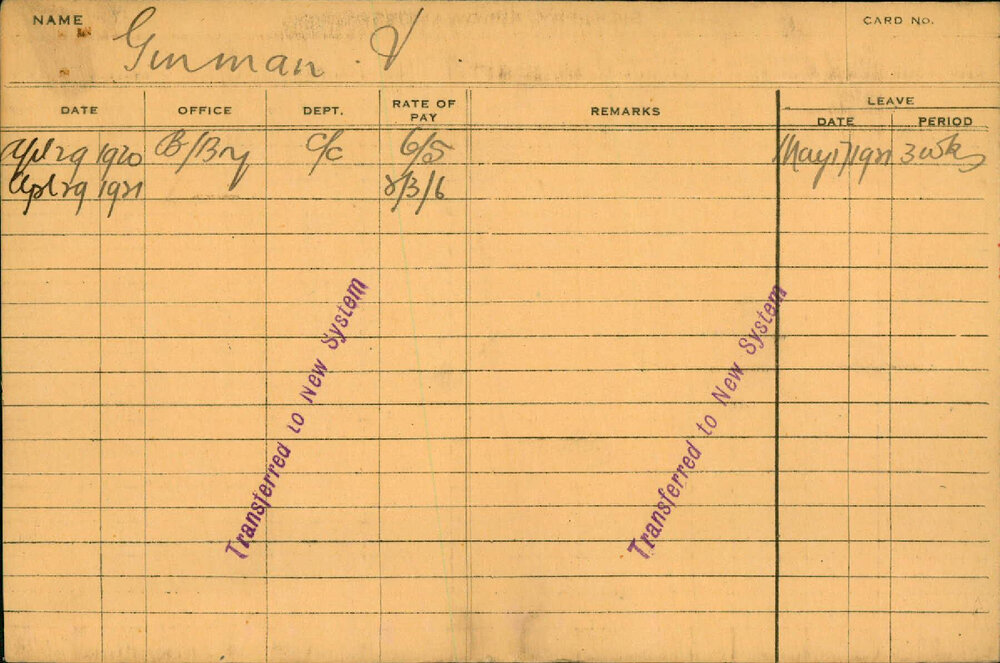 NAME
CARD No.
Ginman V
DATE OFFICE DEPT. RATE OF PAY REMARKS LEAVE
DATE PERIOD
Apl 29 1920 B/Bry C/C 6/5 May 17 1921 3 wks
Apl 29 1921 2/3/6
Transferred to New System
Transferred to New System